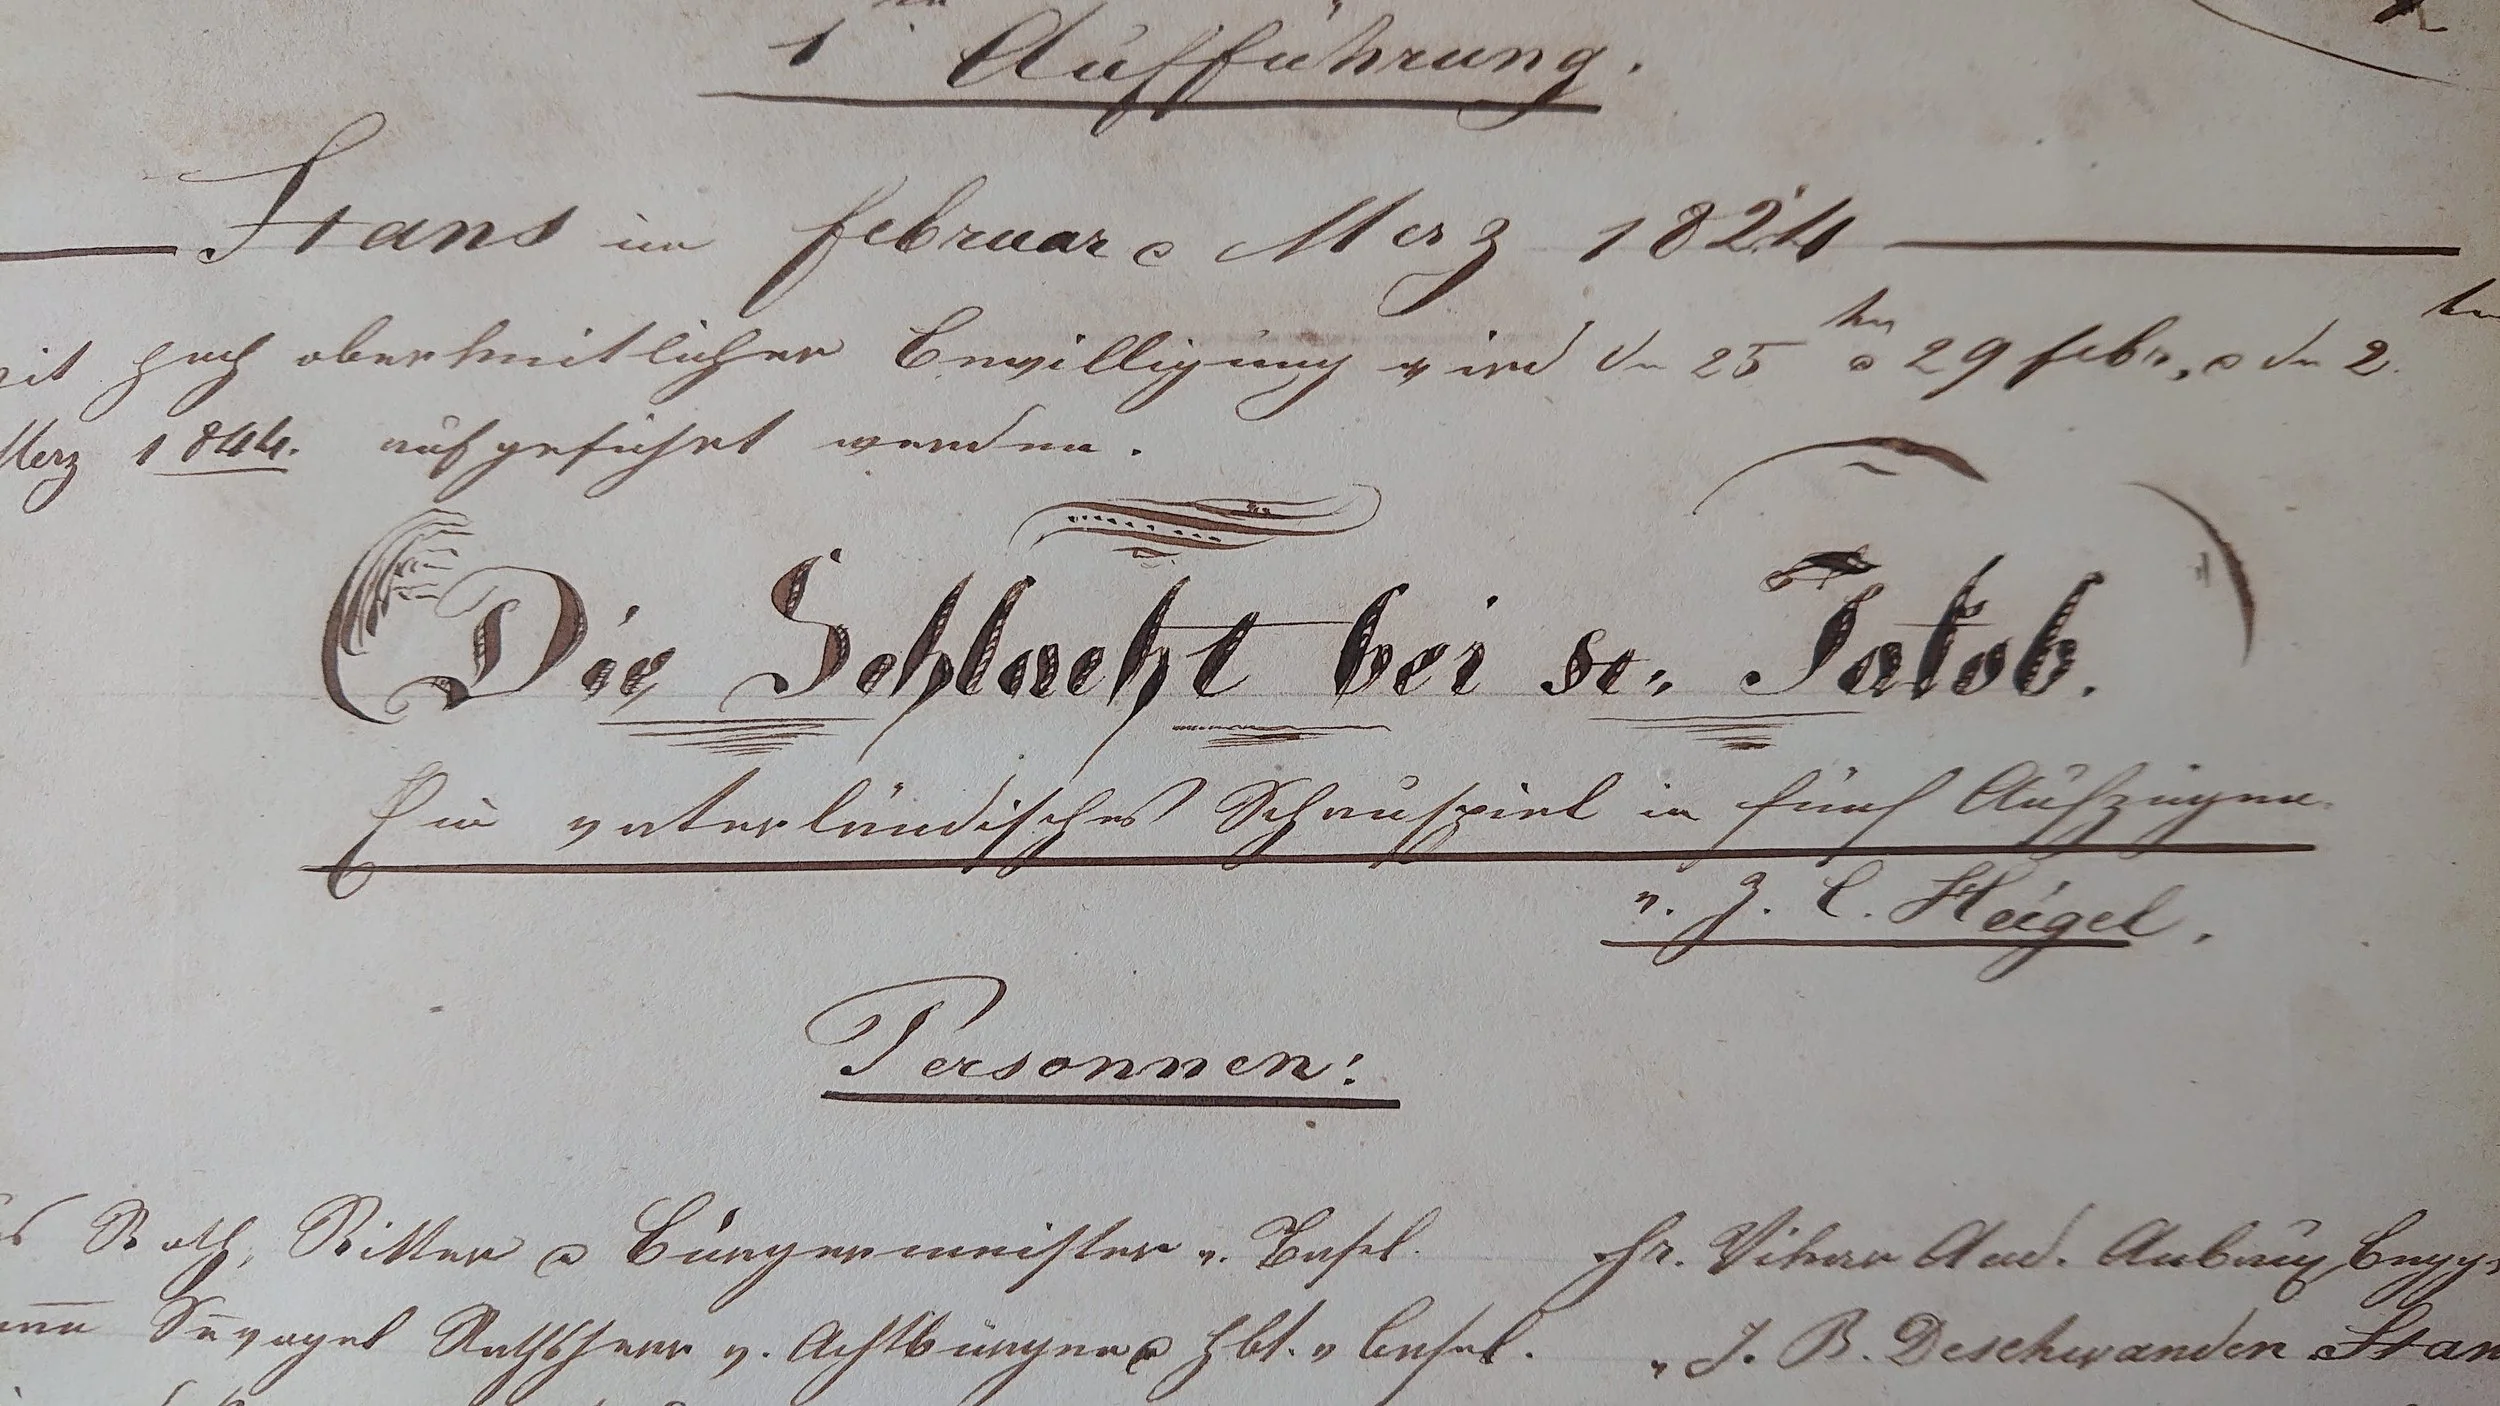 1te Aufführung.
Stans im Februar & Merz 1824
mit hoch oberkeitlicher Bewilligung wird dn 25ten & 29 Febr., & dn 2.ten
Merz 1844. aufgeführt werden.
Die Schlacht bei St. Jakob.
Ein vaterländisches Schauspiel in fünf Aufzügen
v. J. C. Heigel.
Personnen:
Roth, Ritter & Bürgermeister v. Basel. Hr. Vikar And. Aubrüg
Sevogel Rathsherr v. Achtbürger & Hbt. v Basel. " J. B. Deschwanden Stan